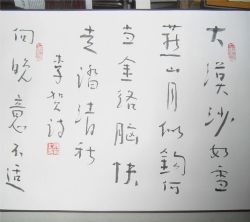 大漠沙如雪
燕山月似钩何
当金络脑快
走踏清秋
李贺诗
向晚意不适